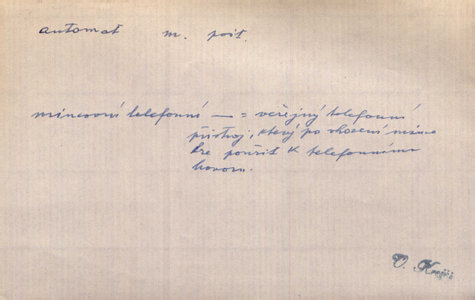 automat m. pošt.
mincovní telefonní — = veřejný telefonní
přístroj, který po vhození mince
lze použít k telefonnímu
hovoru.
V. Krejčí